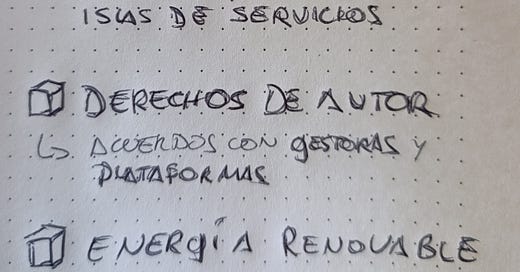 ISLAS DE SERVICIOS
DERECHOS DE AUTOR
↳ ACUERDOS CON GESTORAS Y
PLATAFORMAS
ENERGÍA RENOVABLE